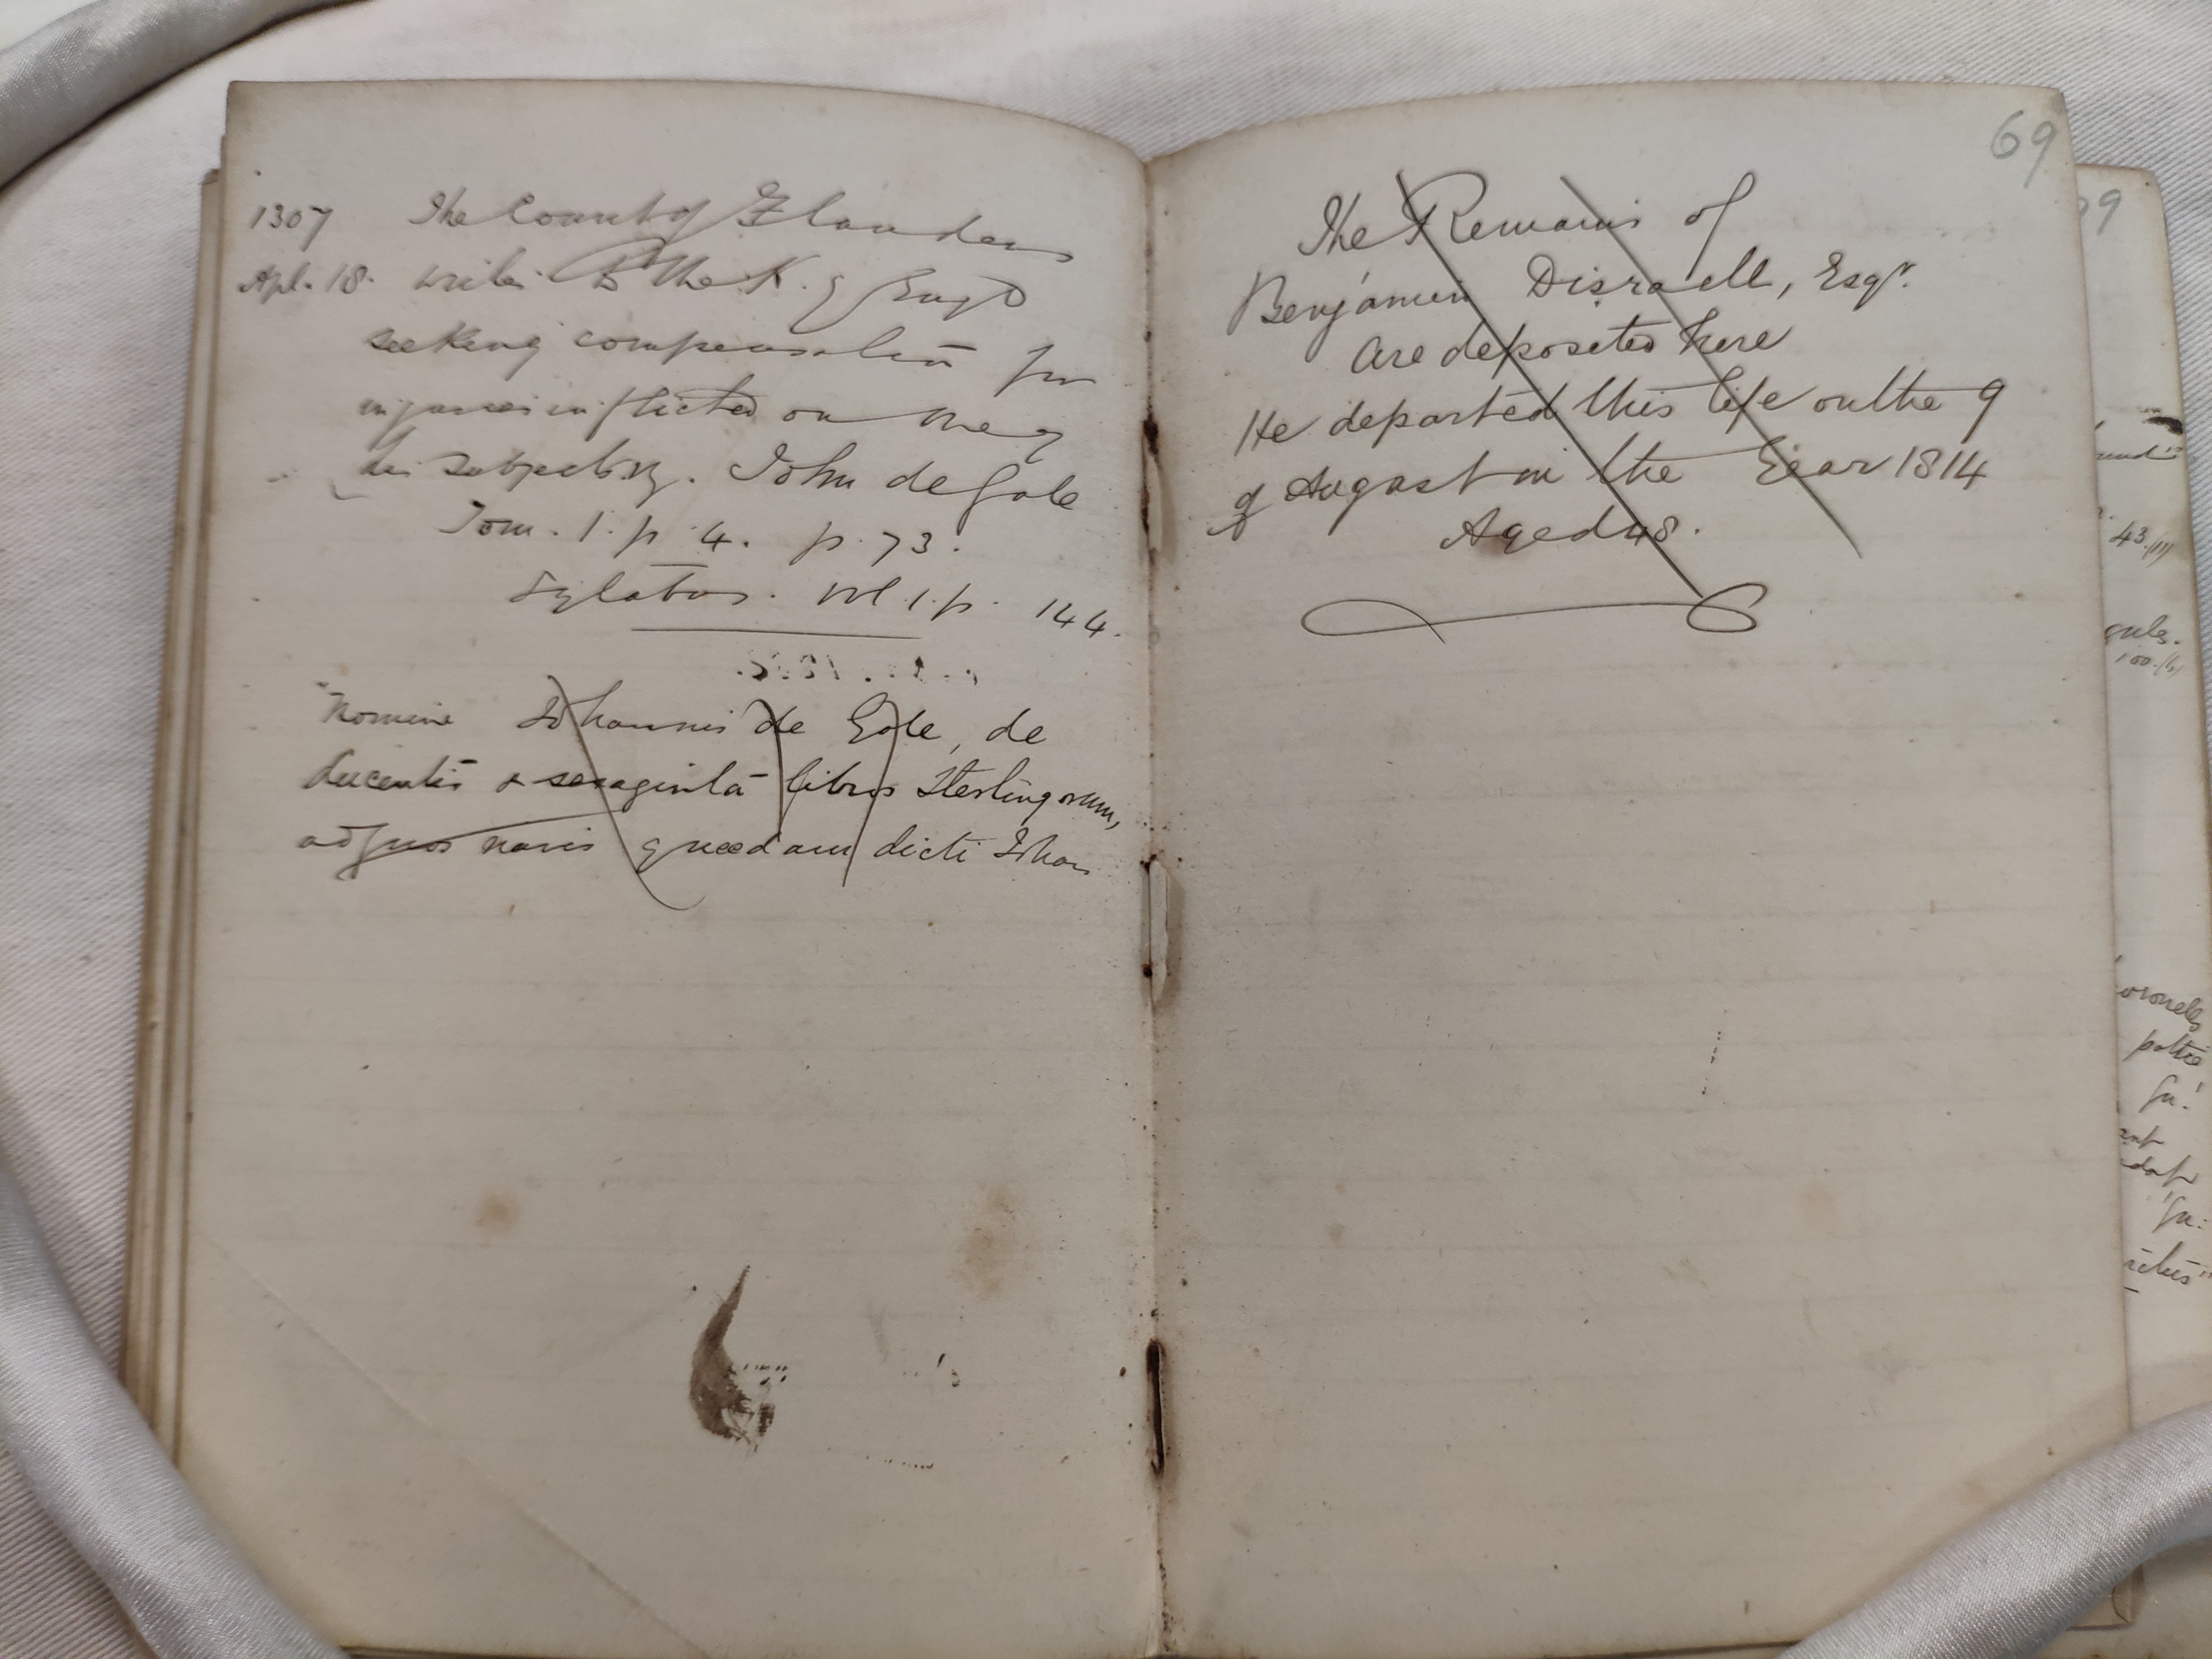 1307 The Count of Flanders
Apl. 18. writes to the K. of Engd
seeking compensation for
injuries inflicted on one of
his subjects, viz. John de Gole
Tom. 1. p. 4. p. 73.
Sylabus. vol. 1. p. 144.
"Nomine Johannis de Gole, de
ducentis & sexaginta libris Sterlingorum,
ad quos navis quædam dicti Johan
69
The Remains of
Benjamin Disraell, Esqr.
are deposited here
He departed this life on the 9
of August in the Year 1814
Aged 48.
43.
100.